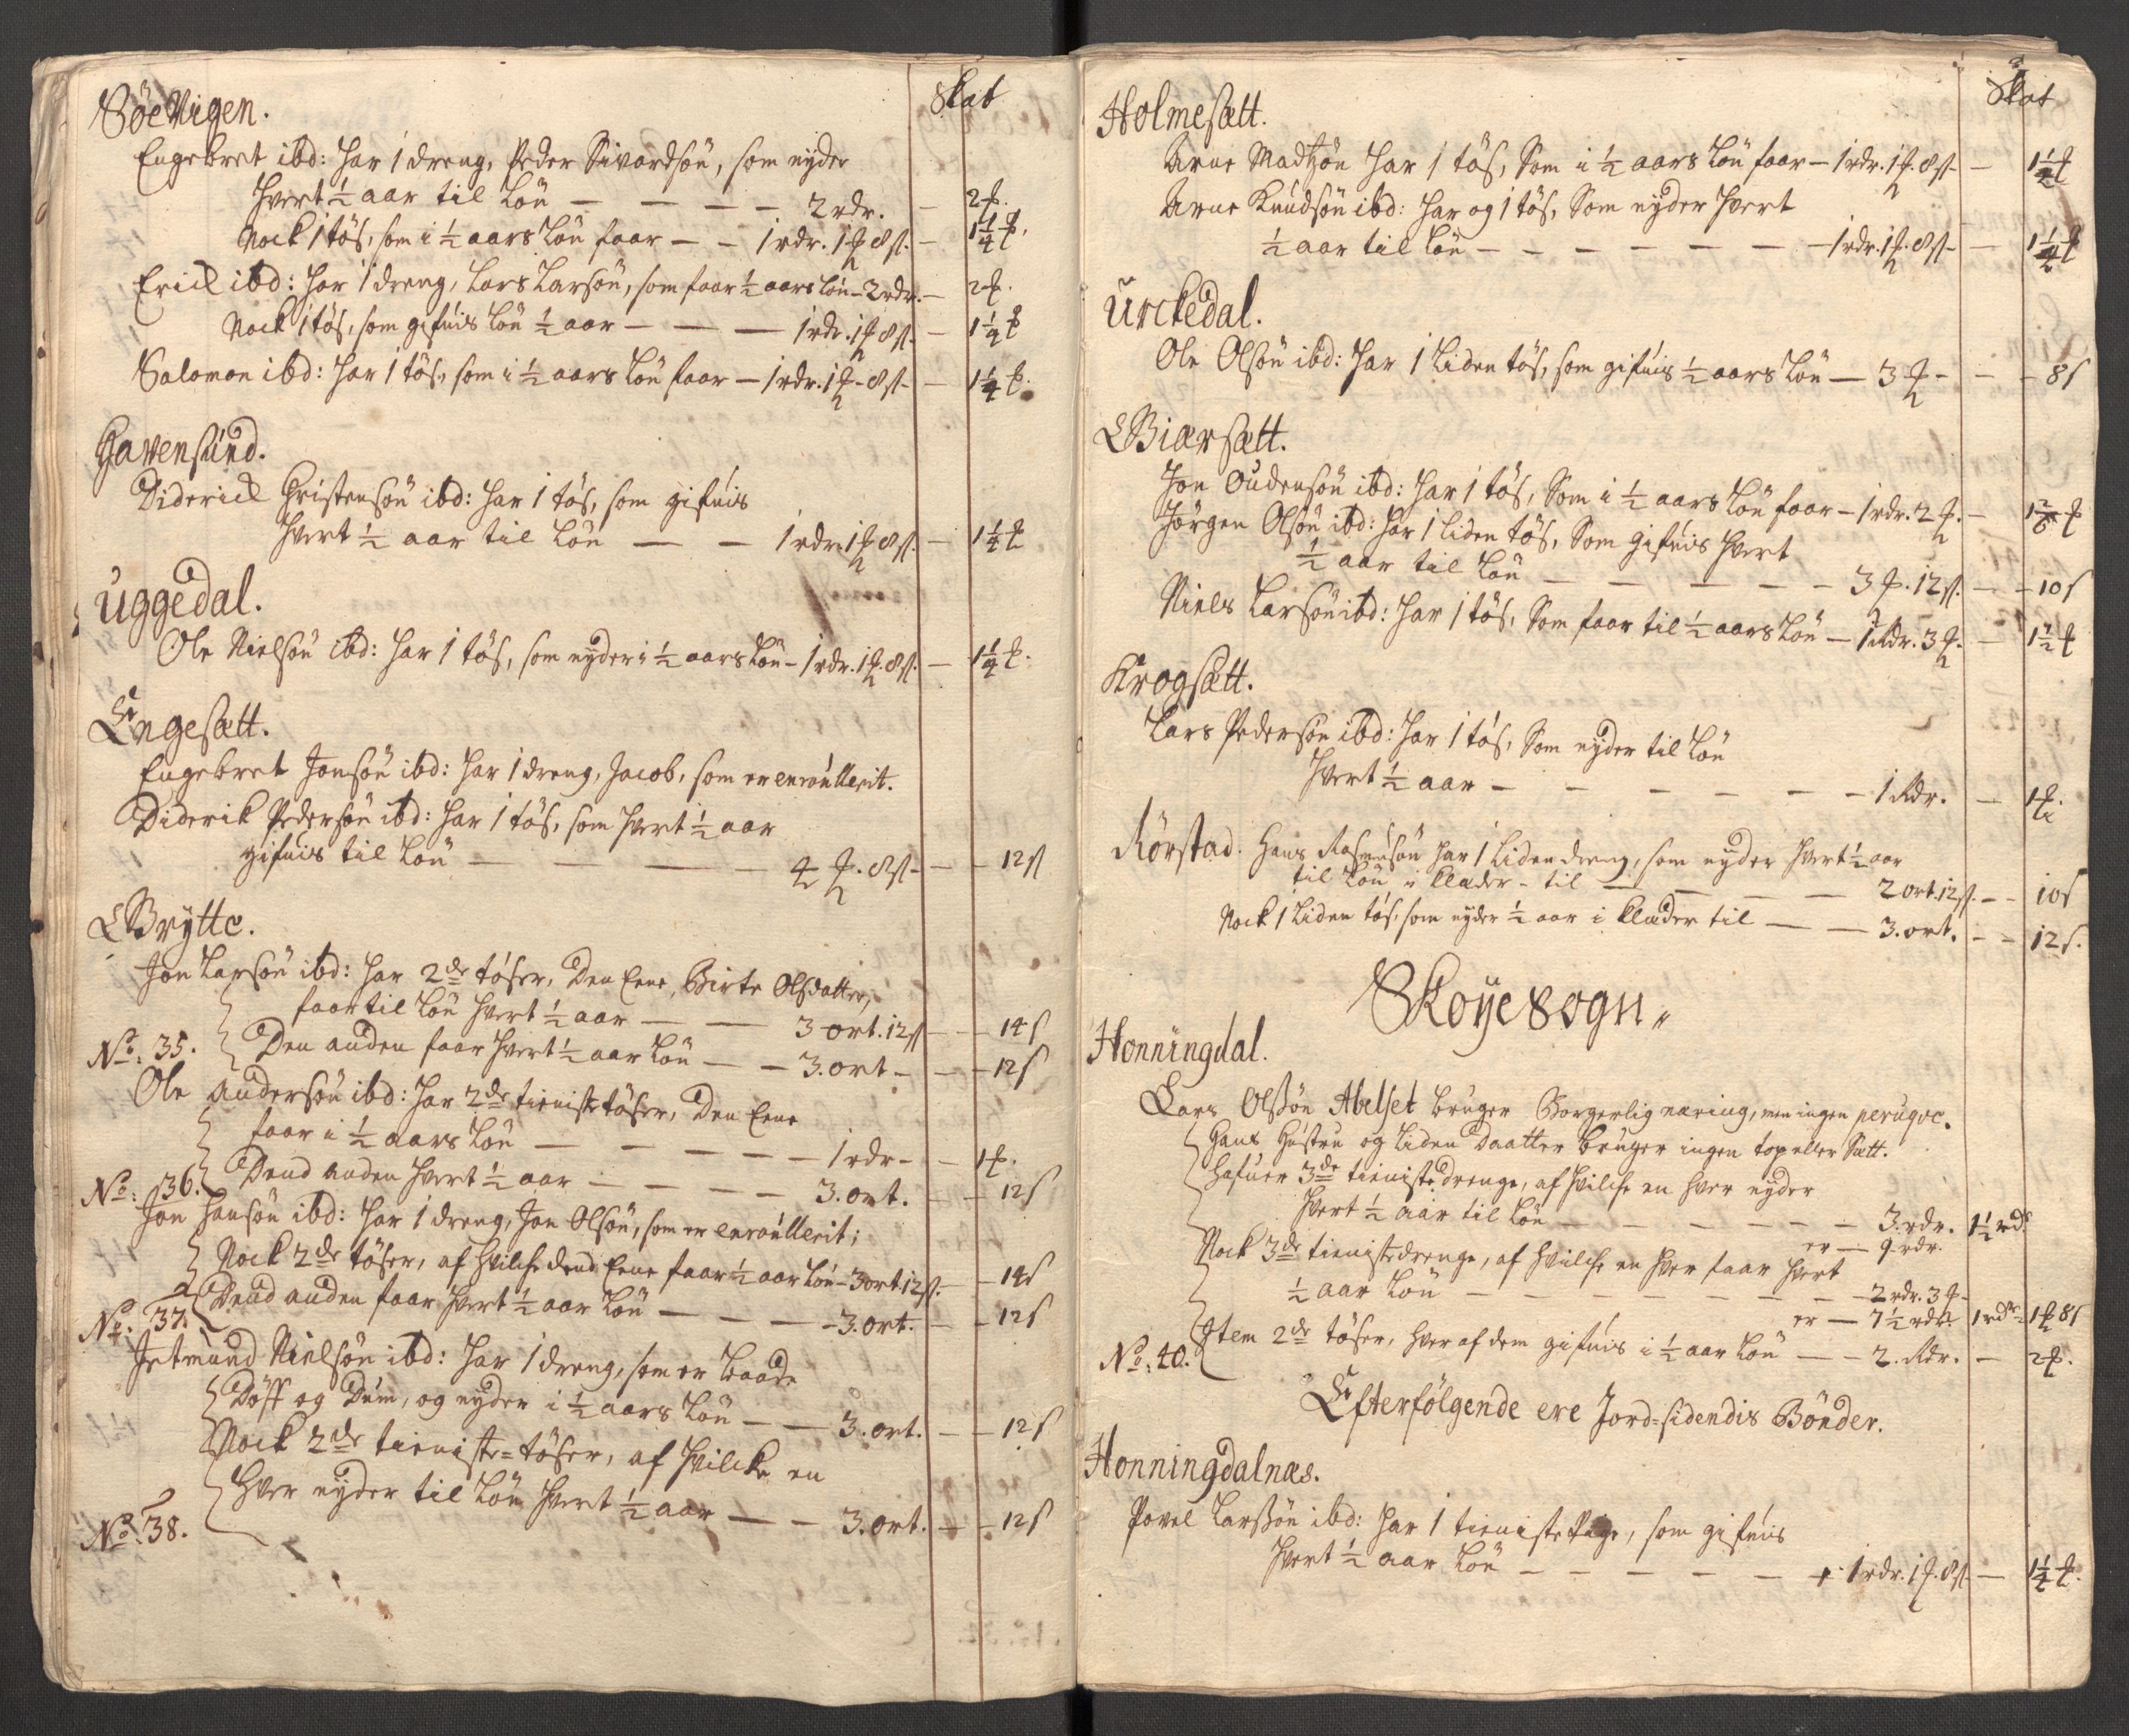 Skat
Söe Vigen.
Engebret ibd: har 1 dreng, Peder Sivordsön, som nyder
hvert ½ aar til Lön — — — — 2 rdr. — 2 ꝑ.
Nock 1 tös, som i ½ aars Lön faar — — 1 rdr. 1 ꝑ 8 ſl. — 1¼ ꝑ.
Erick ibd: har 1 dreng, Lars Larsön, som faar ½ aars Lön – 2 rdr. — 2 ꝑ.
Nock 1 tös, som gifuis Lön ½ aar — — — 1 rdr. 1 ꝑ 8 ſl. — 1¼ ꝑ
Salomon ibd: har 1 tös, som i ½ aars Lön faar — 1 rdr. 1 ꝑ - 8 ſl - — 1¼ ꝑ.
Gavensund.
Diderick Christensön ibd: har 1 tös, som gifuis
hvert ½ aar til Lön — — 1 rdr. 1 ꝑ 8 ſl. — 1¼ ꝑ
Uggedal.
Ole Nielsön ibd: har 1 tös, som nyder i ½ aars Lön – 1 rdr. 1 ꝑ. 8 ſl. — 1¼ ꝑ.
Engesætt.
Engebret Jonsön ibd: har 1 dreng, Jacob, som er enroullerit.
Diderik Pedersön ibd: har 1 tös, som hvert ½ aar
gifuis til Lön — — — — 4 ꝑ. 8 ſl - — — 12 ſl
Brytte.
Jon Larsön ibd: har 2de töser, den Eene, Birte Olsdatter,
faar til Lön hvert ½ aar — — 3 ort. 12 ſl — — 14 s
No: 35. Den anden faar hvert ½ aar Lön — — 3. ort - — — 12 s
Ole Andersön ibd: har 2de tieniste töser, Den Eene
faar i ½ aars Lön — — — — — 1 rdr - — 1 ꝑ.
No: 36. Dend anden hvert ½ aar — — — — 3. ort. — — 12 s
Jon Hansön ibd: har 1 dreng, Jon Olsön, som er enroullerit;
Nock 2de töser, af hvilche dend Eene faar ½ aar Lön – 3 ort 12 ſl. — — 14 s
No: 37. Dend anden faar hvert ½ aar Lön — — — — 3. ort. — — 12 s
Jetmund Nielsön ibd: har 1 dreng, som er baade
Döff og Dum, og nyder i ½ aars Lön — — 3. ort. — — 12 s
Nock 2de tieniste-töser, af hvilcke en
No: 38. hver nyder til Lön hvert ½ aar — — 3. ort. — — 12 s
Skat
Holmesætt.
Arne Madtzön har 1 tös, Som i ½ aars Lön faar — 1 rdr. 1 ꝑ. 8 ſl - — 1¼ ꝑ
Arne Knudsön ibd: har og 1 tös, Som nyder hvert
½ aar til Lön — — — — — — — 1 rdr. 1 ꝑ. 8 ſl - — 1¼ ꝑ
Urckedal.
Ole Olsön ibd: har 1 Liden tös, som gifuis ½ aars Lön — 3 ꝑ - — — 8 s
Biærsætt.
Jon Oudensön ibd: har 1 tös, Som i ½ aars Lön faar — 1 rdr. 2 ꝑ. — 1 ꝑ
Jörgen Olsön ibd: har 1 liden tös, Som gifuis hvert
½ aar til Lön — — — — — — 3 ꝑ. 12 ſl. — — 10 s
Niels Larsön ibd: har 1 tös, Som faar til ½ aars Lön — 1 Rdr. 3 ꝑ. — 1½ ꝑ
Krogsætt.
Lars Pedersön ibd: har 1 tös, Som nyder til Lön
hvert ½ aar — — — — — — — 1 Rdr. — 1 ꝑ.
Rörstad. Hans Rasmusön har 1 Liden dreng, som nyder hvert ½ aar
til Lön i klæder - til — — — — 2 ort. 12 ſl. — — 10 s
Nock 1 Liden tös, som nyder ½ aar i klæder til — — 3. ort. — — 12 s.
Skoye Sogn
Honningdal.
Lars Olssön Abelset bruger Borgerlig næring, men ingen peruqve.
Hans Hustru og Liden daatter bruger ingen top eller Sætt.
Hafuer 3de tieniste drenge, af hvilche en hver nyder
hvert ½ aar til Lön — — — — — — 3. rdr. 1½ rd
er — 9 rdr.
Nock 3de tienistedrenge, af hvilche en hver faar hvert
½ aar Lön — — — — — — — 2 rdr. 3 ꝑ -
er — 7½ rdr. 1 rdr 1 ꝑ 8 s
No: 40. Item 2de töser, hver af dem gifuis i ½ aar Lön — — 2. Rdr. — 2 ꝑ.
Efterfölgende ere Jord-sidendis Bönder.
Honningdalnæs.
Povel Larssön ibd: har 1 tieniste Pige, som gifuis
hvert ½ aar Lön — — — — — — 1 rdr. 1 ꝑ. 8 ſl — 1¼ ꝑ.